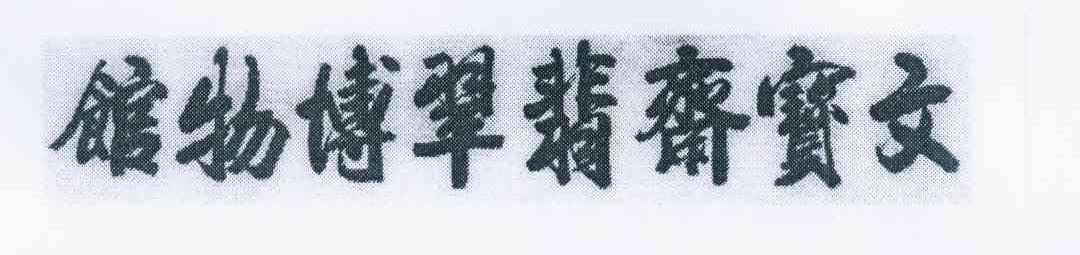 文寶齋翡翠博物館